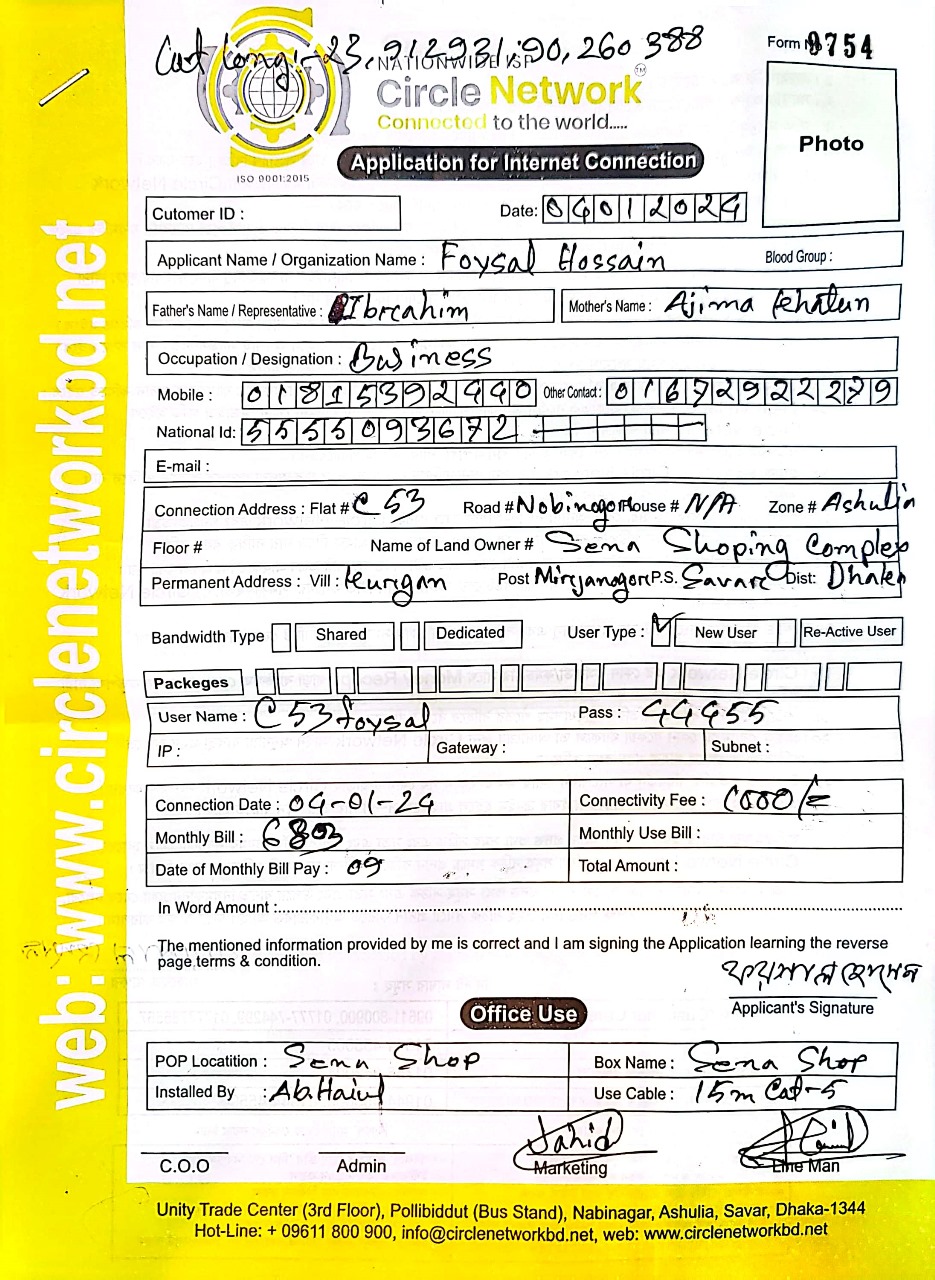 Cat Long:-23.912931, 90,260388
Form 9754
NATIONWIDE ISP
Circle Network™
Connected to the world.....
ISO 9001:2015
Application for Internet Connection
Photo
Cutomer ID :
Date: 04012024
Applicant Name / Organization Name : Foysal Hossain Blood Group :
Father's Name / Representative : Ibrahim Mother's Name : Ajima Khatun
Occupation / Designation : Business
Mobile : 01815392440 Other Contact : 01672922279
National Id: 5555093672
E-mail :
Connection Address : Flat # C 53 Road # Nobinogor House # N/A Zone # Ashulia
Floor # Name of Land Owner # Sena Shoping Complex
Permanent Address : Vill : Kurgan Post Mirjanagor P.S. Savar Dist: Dhaka
Bandwidth Type Shared Dedicated User Type : ✓ New User Re-Active User
Packeges
User Name : C53foysal Pass : 44455
IP : Gateway : Subnet :
Connection Date : 04-01-24 Connectivity Fee : 1000/=
Monthly Bill : Monthly Use Bill :
Date of Monthly Bill Pay : 09 Total Amount :
In Word Amount :
The mentioned information provided by me is correct and I am signing the Application learning the reverse
page terms & condition.
ফয়সাল হোসেন
Applicant's Signature
Office Use
POP Locatition : Sena Shop Box Name : Sena Shop
Installed By : Use Cable : 15m Cat-5
Jahid
C.O.O Admin Marketing Line Man
Unity Trade Center (3rd Floor), Pollibiddut (Bus Stand), Nabinagar, Ashulia, Savar, Dhaka-1344
Hot-Line: + 09611 800 900, info@circlenetworkbd.net, web: www.circlenetworkbd.net
web: www.circlenetworkbd.net